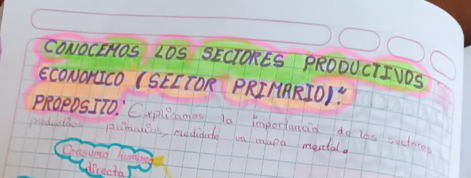 CONOCEMOS LOS SECTORES PRODUCTIVOS
ECONOMICO (SECTOR PRIMARIO)."
PROPOSITO: Explicamos la importancia de los sectores
productivos primarios, mediante un mapa mental.
Consumo humano
directa